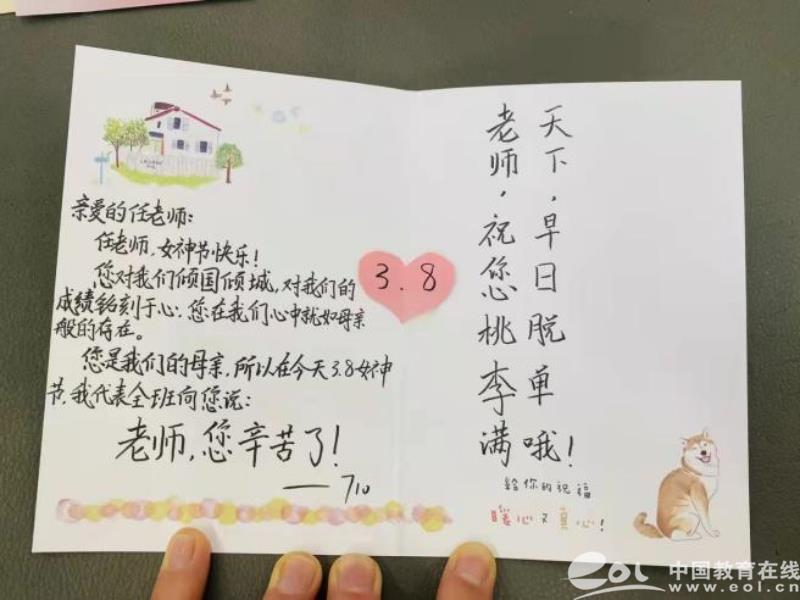 亲爱的任老师:
任老师,女神节快乐!
您对我们倾国倾城,对我们的
成绩铭刻于心.您在我们心中就如母亲
般的存在。
您是我们的母亲,所以在今天3.8女神
节,我代表全班向您说:
老师,您辛苦了!
——710
3.8
天下,早日脱单哦!
老师,祝您桃李满
给你的祝福
暖心又真心!
中国教育在线
www.eol.cn